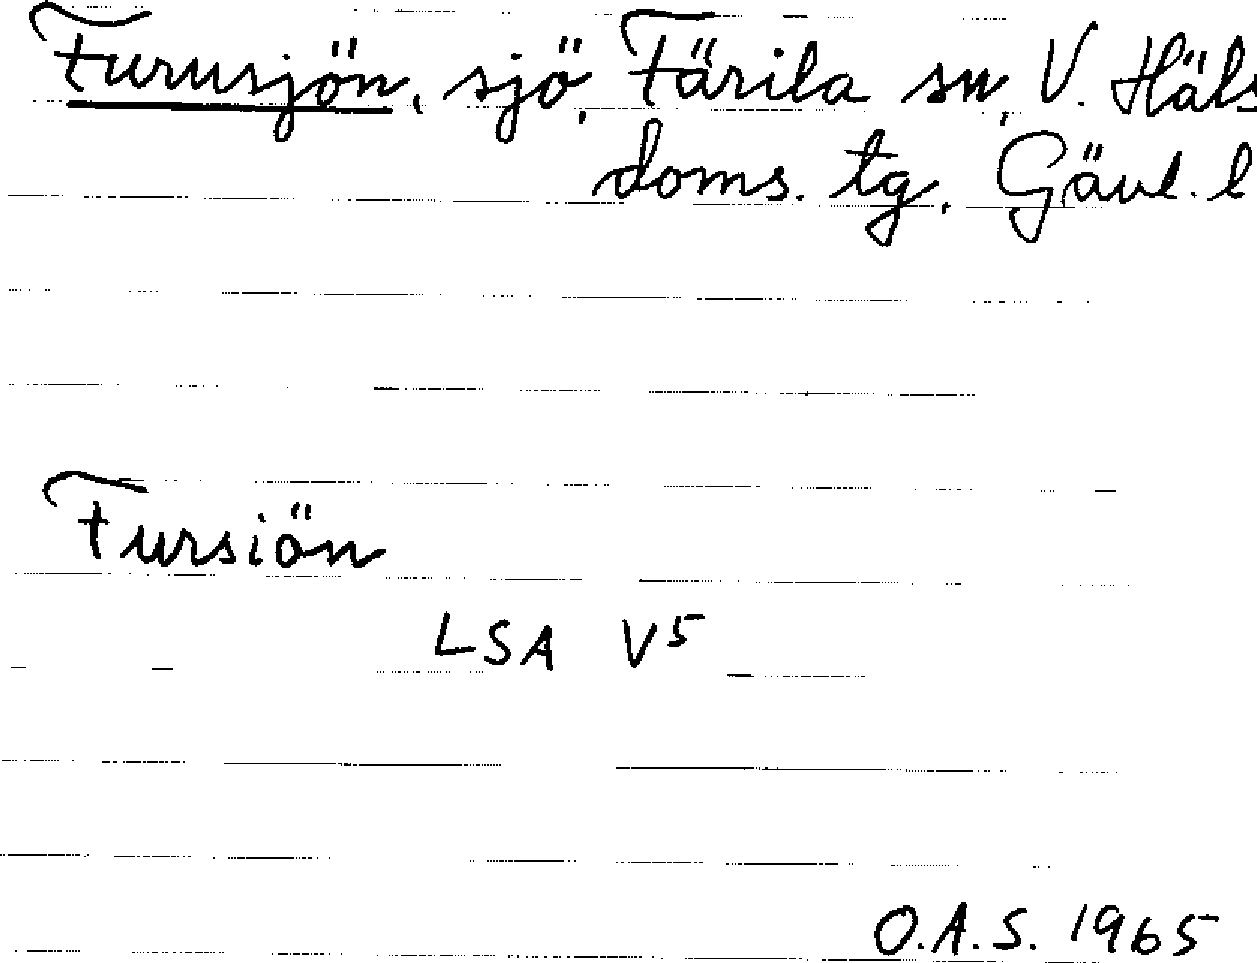 Furusjön, sjö, Färila sn, V. Häls
doms. tg, Gävl. l
Fursiön
LSA V5
O.A.S. 1965